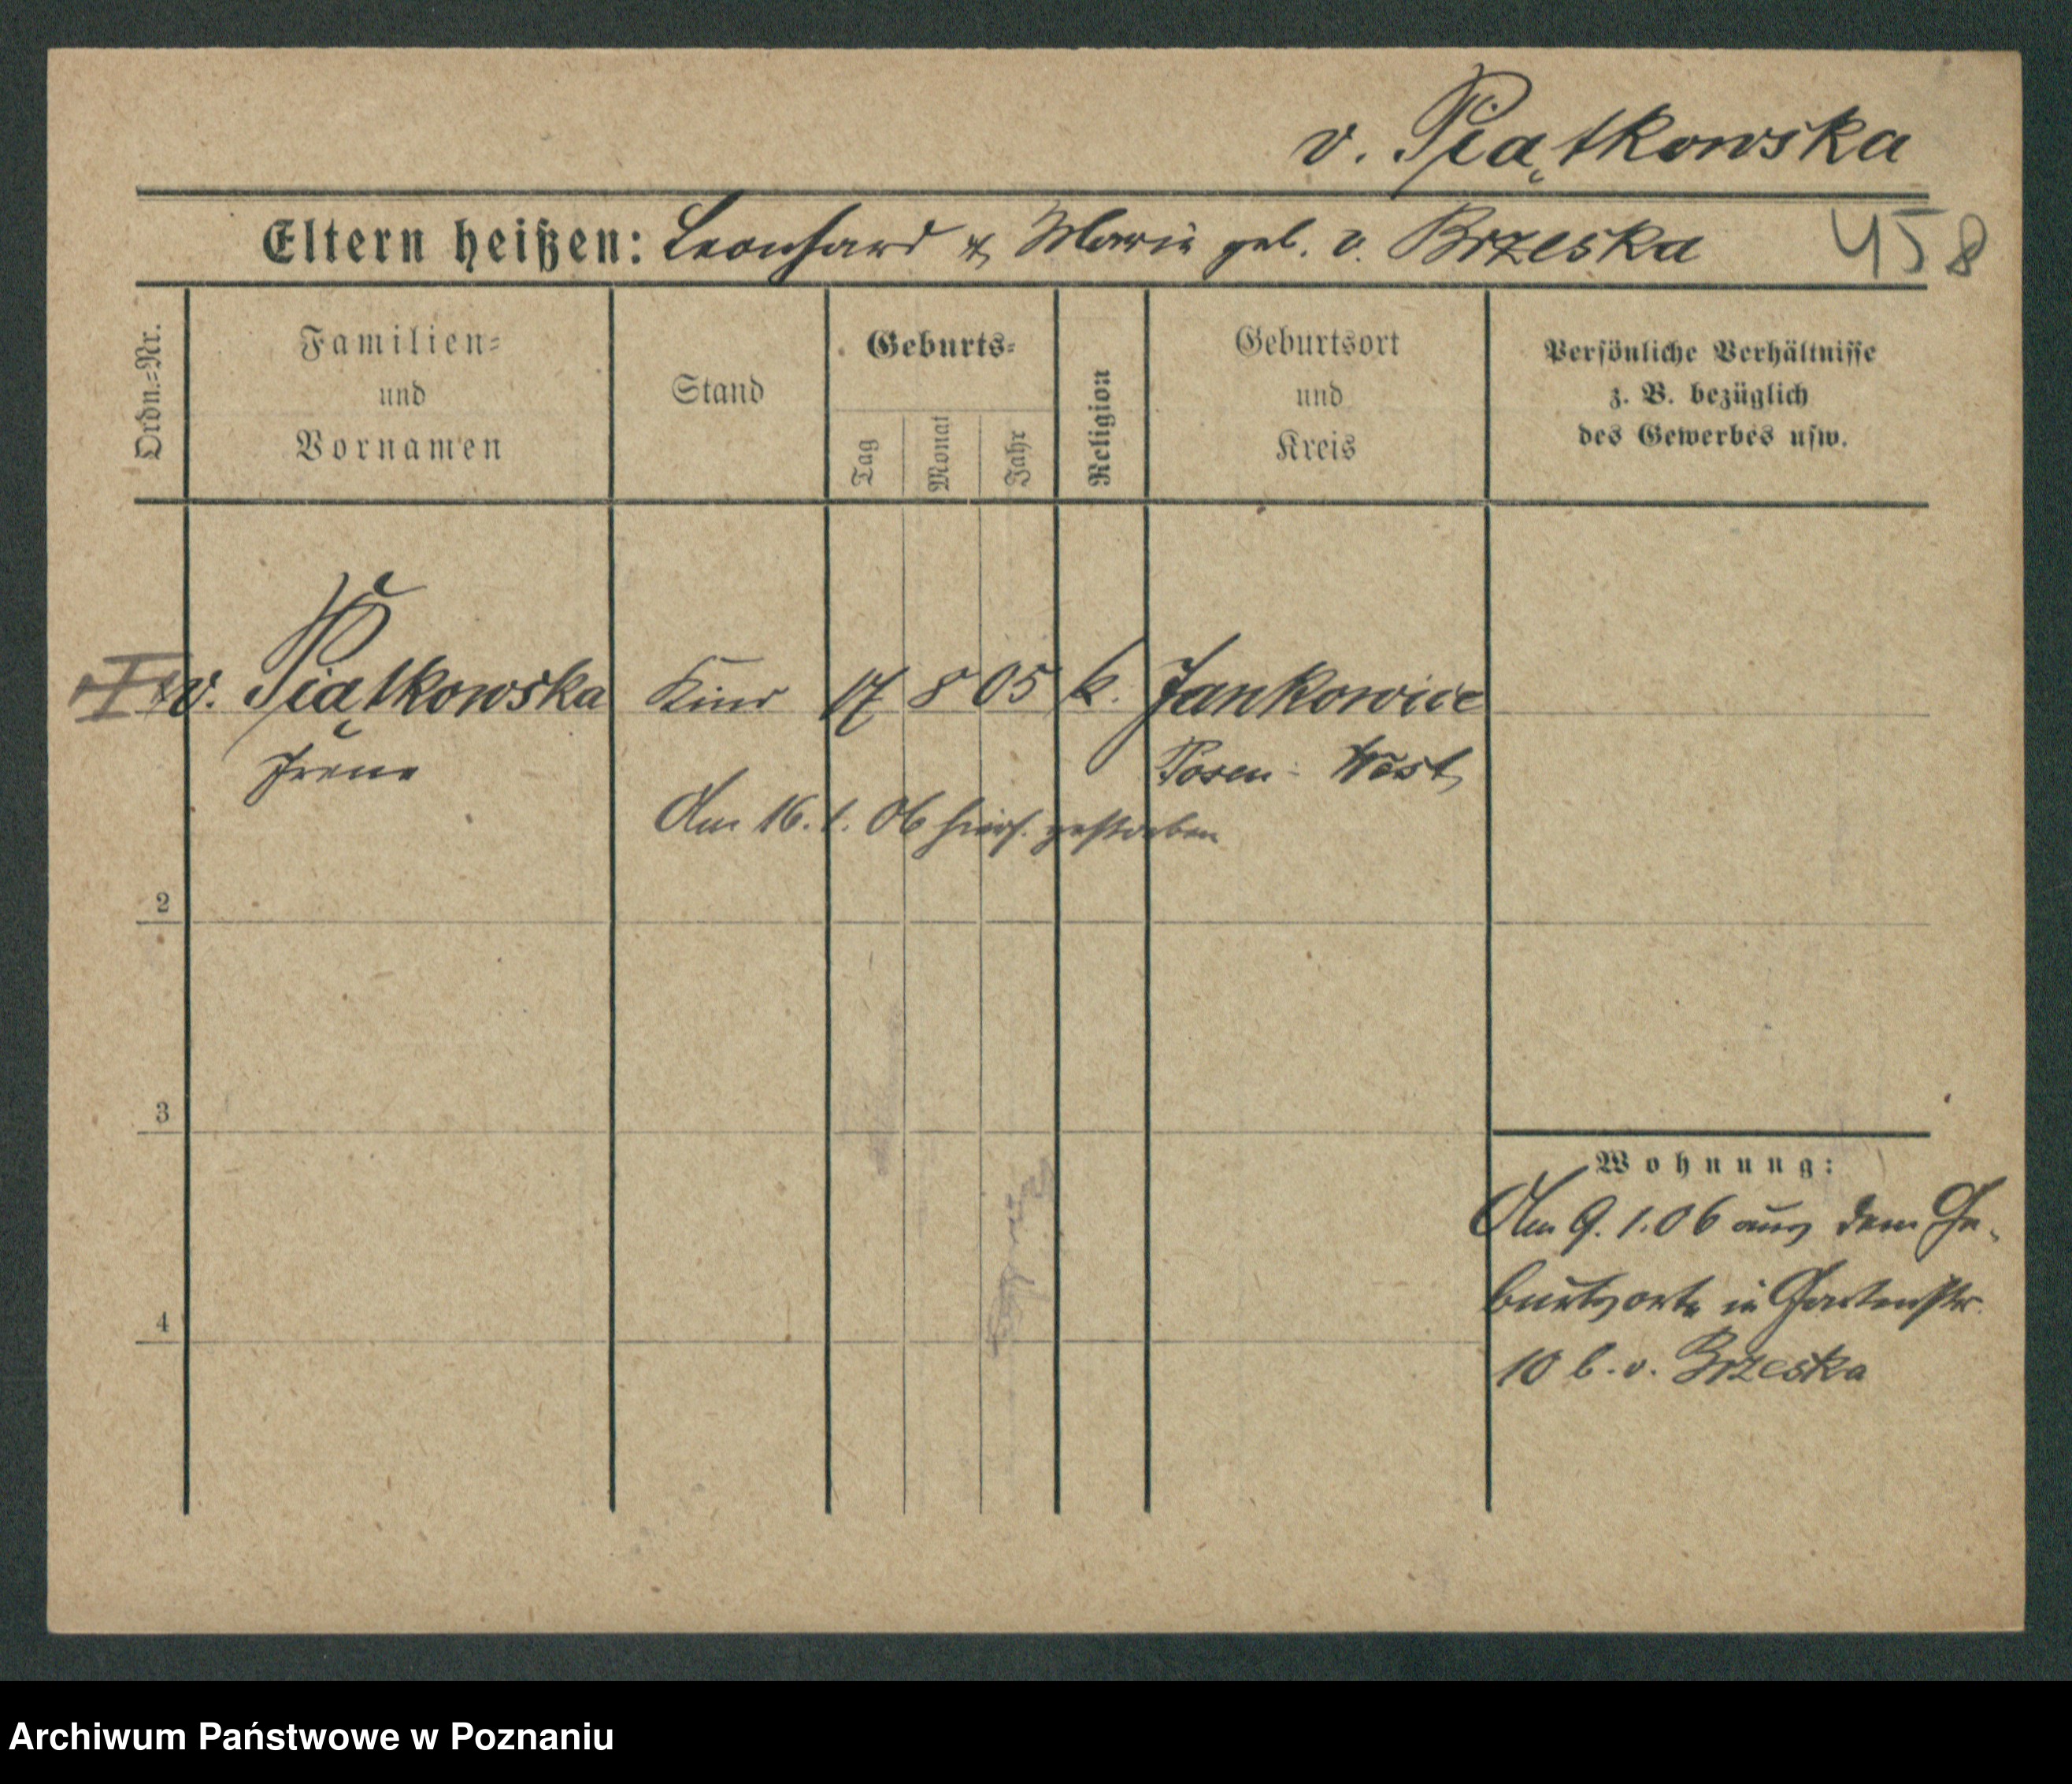 v. Piątkowska
Eltern heißen: Leonhard & Marie geb. v. Brzeska 458
Ordn.=Nr.
Familien=
und
Vornamen
Stand
Geburts=
Tag
Monat
Jahr
Religion
Geburtsort
und
Kreis
Persönliche Verhältnisse
z. B. bezüglich
des Gewerbes usw.
v. Piątkowska Kind 17 8 05 k. Jankowice
Irene Posen-West
Am 16. 1. 06 hiers. gestorben
2
3
4
Wohnung:
Am 9. 1. 06 aus dem Ge-
burtsorte in Gartenstr.
10 b. v. Brzeska
Archiwum Państwowe w Poznaniu